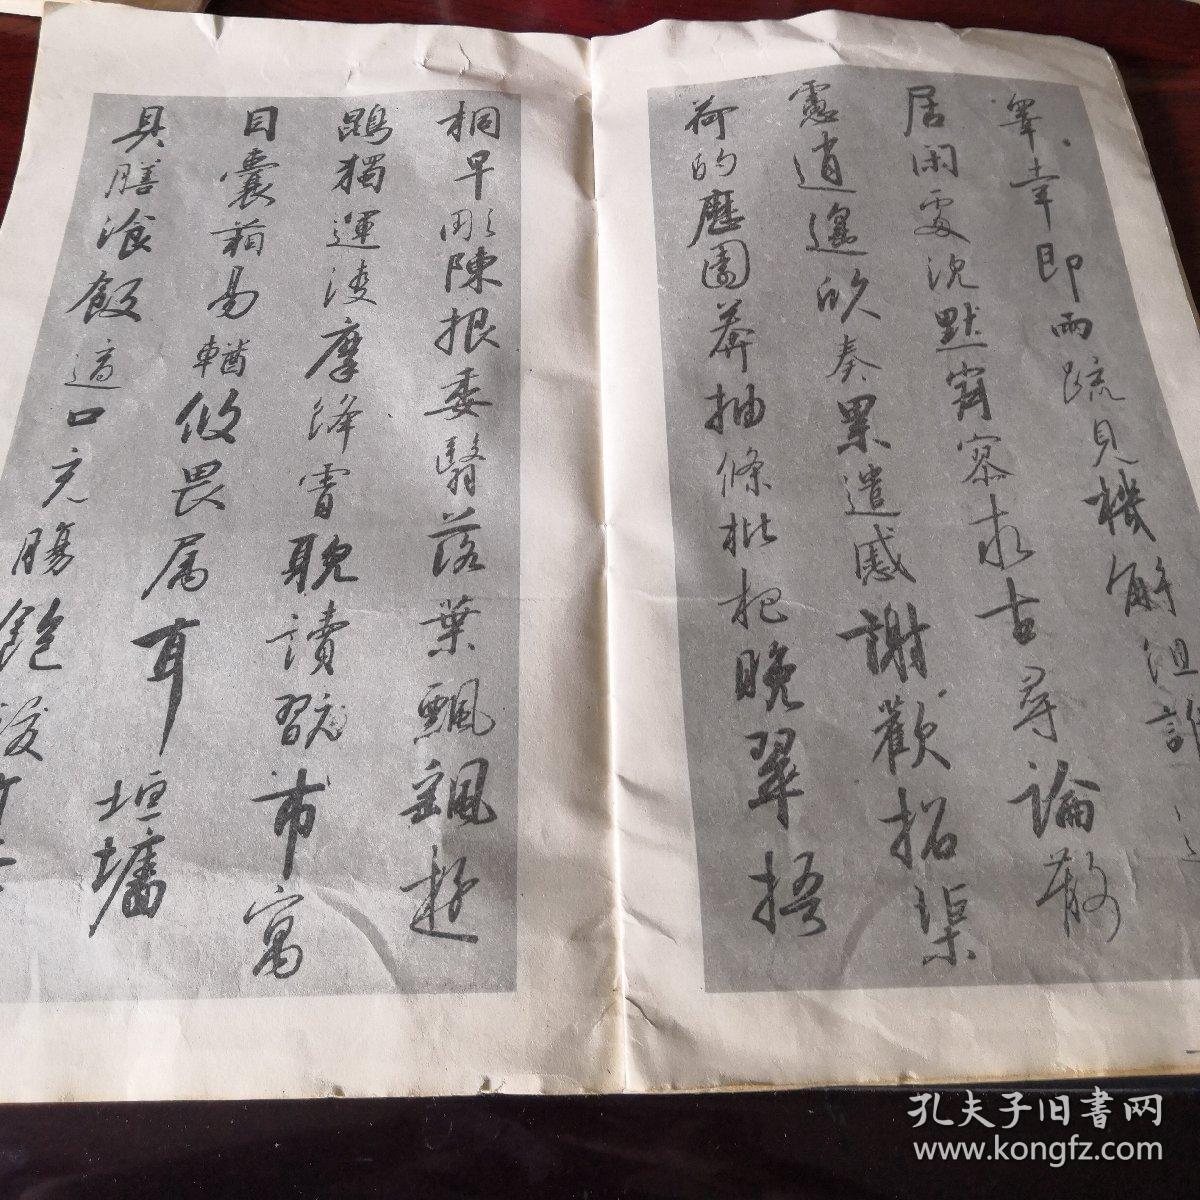 皋幸即兩疏見機解組誰逼
居閑處沈默寂寥求古尋論散
慮逍遙欣奏累遣慼謝歡招渠
荷的歷園莽抽條枇杷晚翠梧
桐早彫陳根委翳落葉飄颻遊
鵾獨運凌摩絳霄耽讀翫市寓
目囊箱易輶攸畏属耳垣墻
具膳飡飯適口充腸飽
孔夫子旧书网
www.kongfz.com